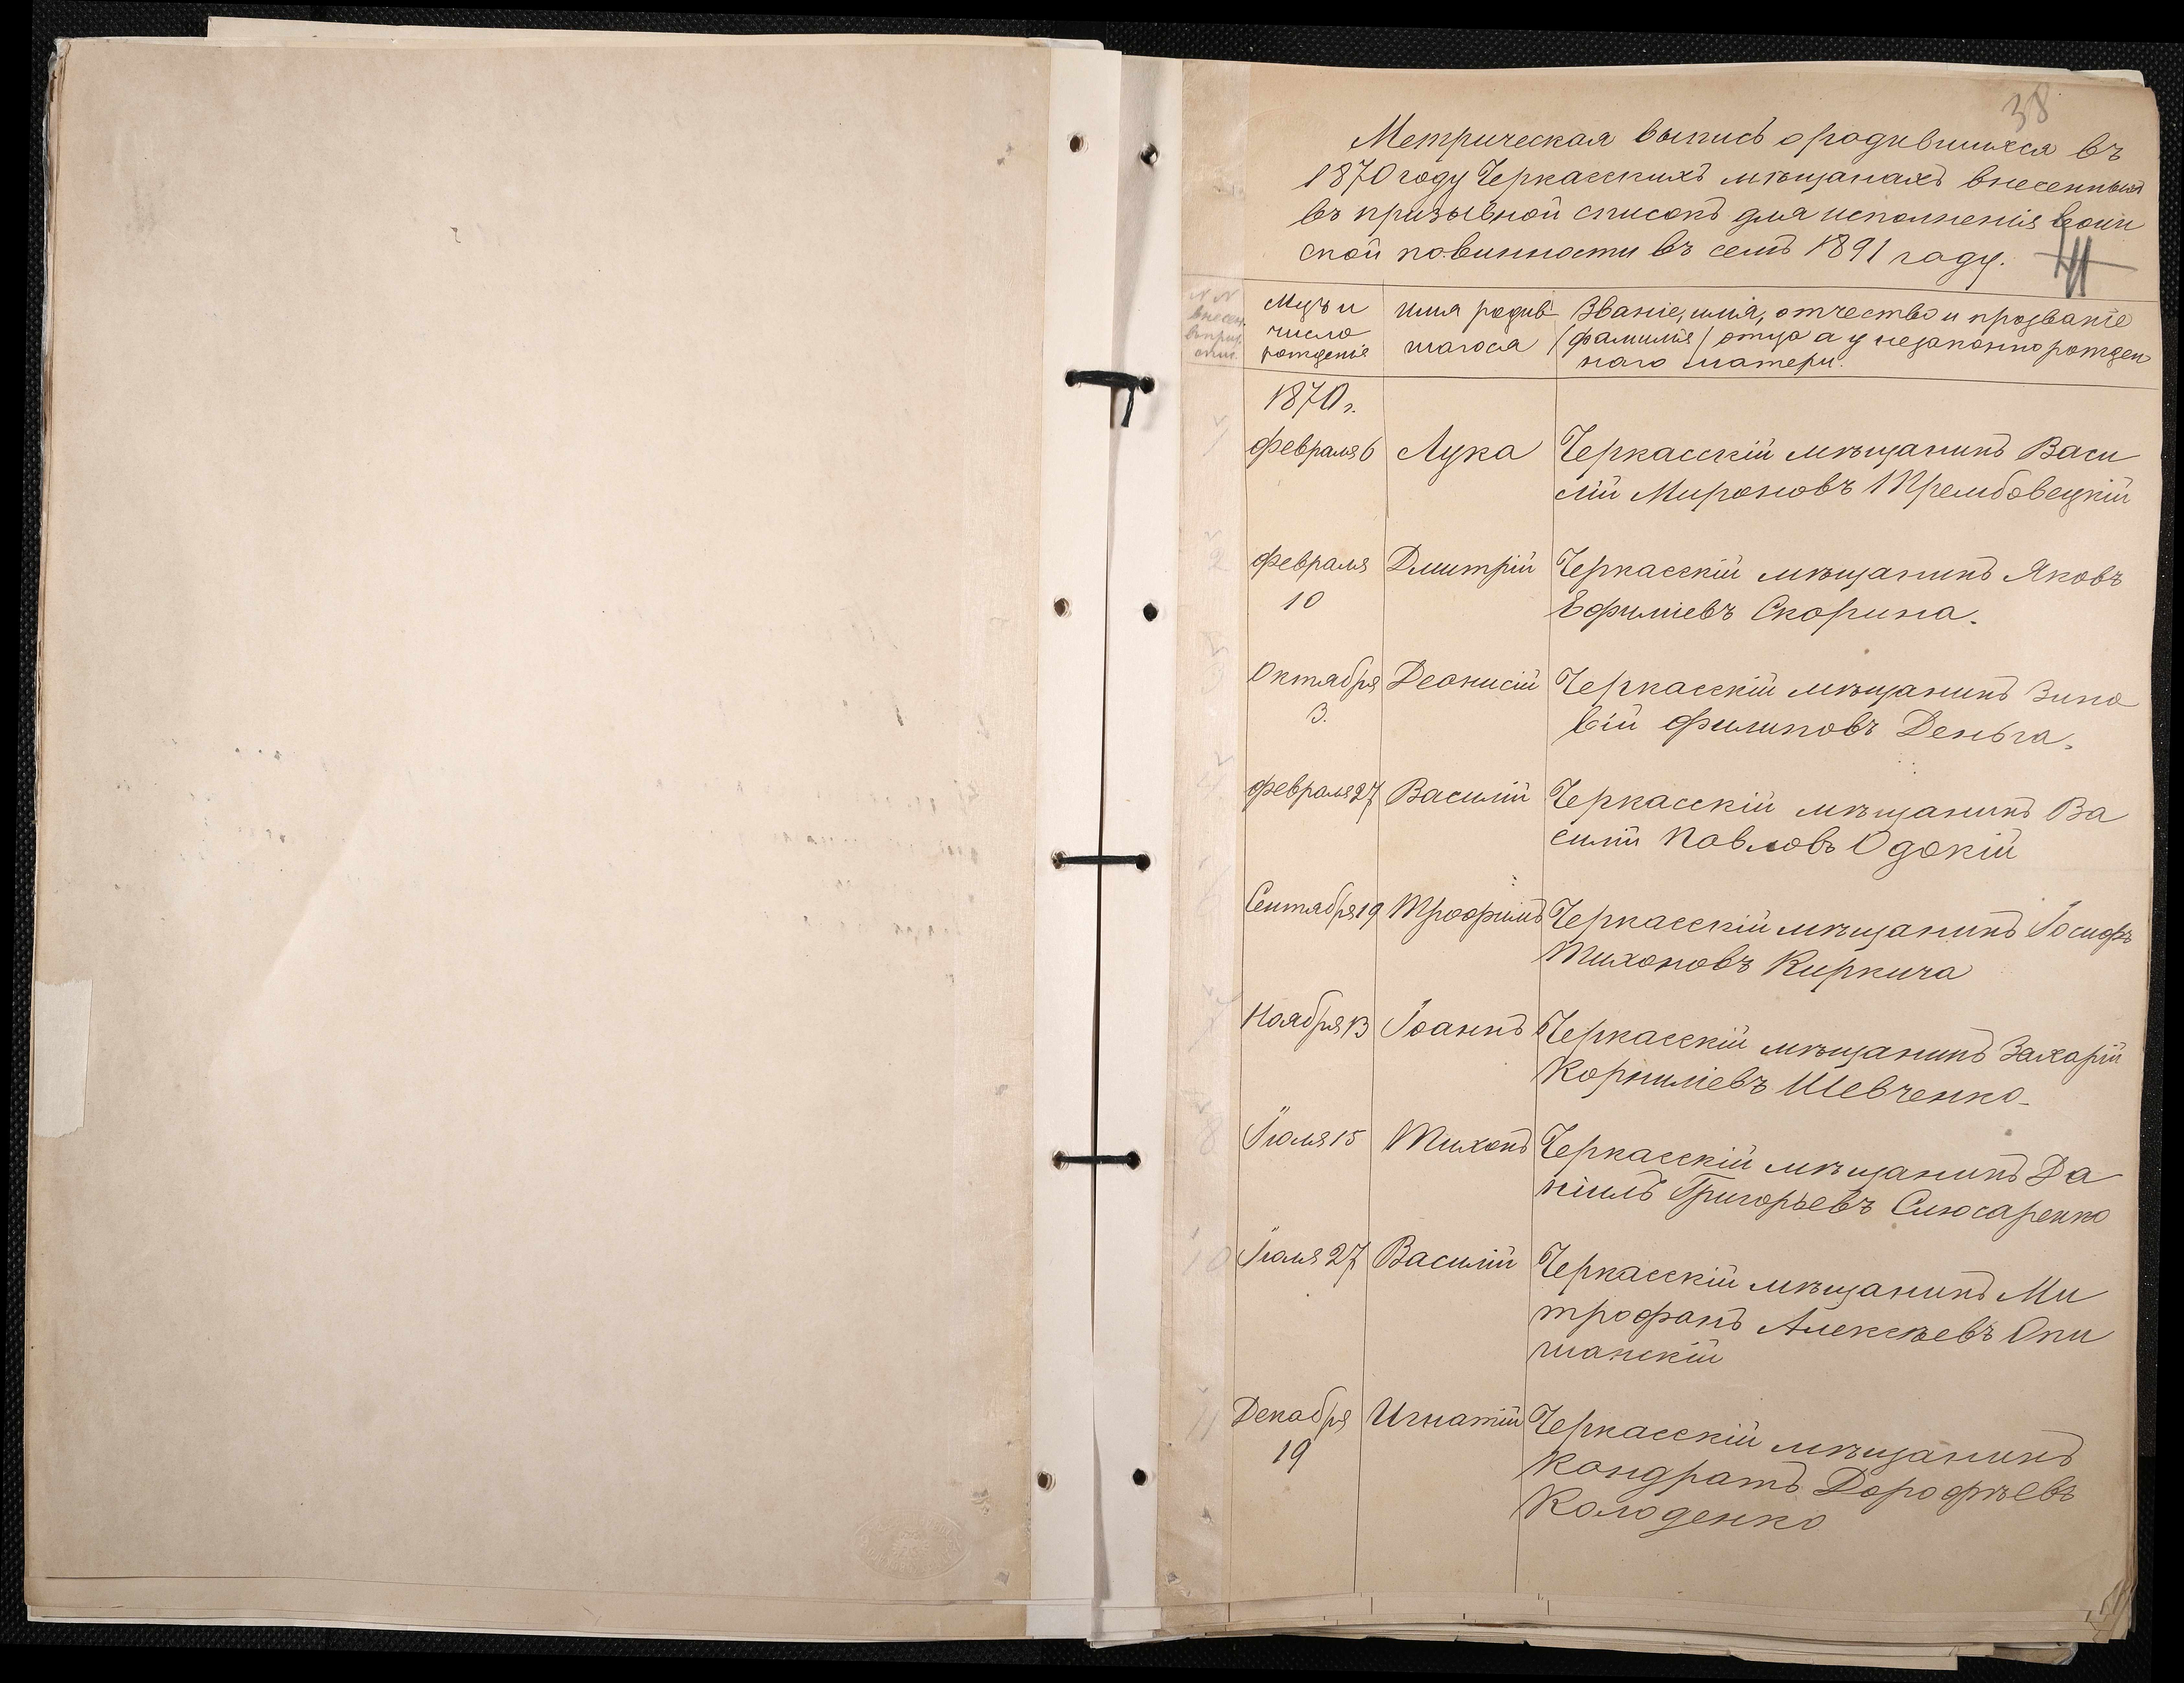 38
Метрическая выпись о родившихся въ
1870 году Черкасскихъ мѣщанахъ внесенныхъ
въ призывной списокъ для исполненія воин
ской повинности въ семъ 1891 году.
41
№ №
внесен.
въ приз.
спис.
Мѣсъ и
число
рожденія
имя родив
шагося
Званіе, имя, отчество и прозваніе
(фамилія) отца а у незаконно рожден
наго матери.
1870 г.
1
февраля 6
Лука
Черкасскій мѣщанинъ Васи
лій Мироновъ Трембовецкій
2
февраля
10
Дмитрій
Черкасскій мѣщанинъ Яковъ
Ефиміевъ Скорина.
Октября
3.
Деонисій
Черкасскій мѣщанинъ Зино
вій Филиповъ Деньга.
февраля 27
Василій
Черкасскій мѣщанинъ Ва
силій Павловъ Одокій
Сентября 19
Трофимъ
Черкасскій мѣщанинъ Іосифъ
Тихоновъ Киркича
Ноября 13
Іоаннъ
Черкасскій мѣщанинъ Захарій
Корниліевъ Шевченко.
8
Іюля 15
Тихонъ
Черкасскій мѣщанинъ Да
ніилъ Григорьевъ Слюсаренко
10
Іюля 27
Василій
Черкасскій мѣщанинъ Ми
трофанъ Алексѣевъ Опи
шанскій
11
Декабря
19
Игнатій
Черкасскій мѣщанинъ
Кондратъ Дорофѣевъ
Колоденко